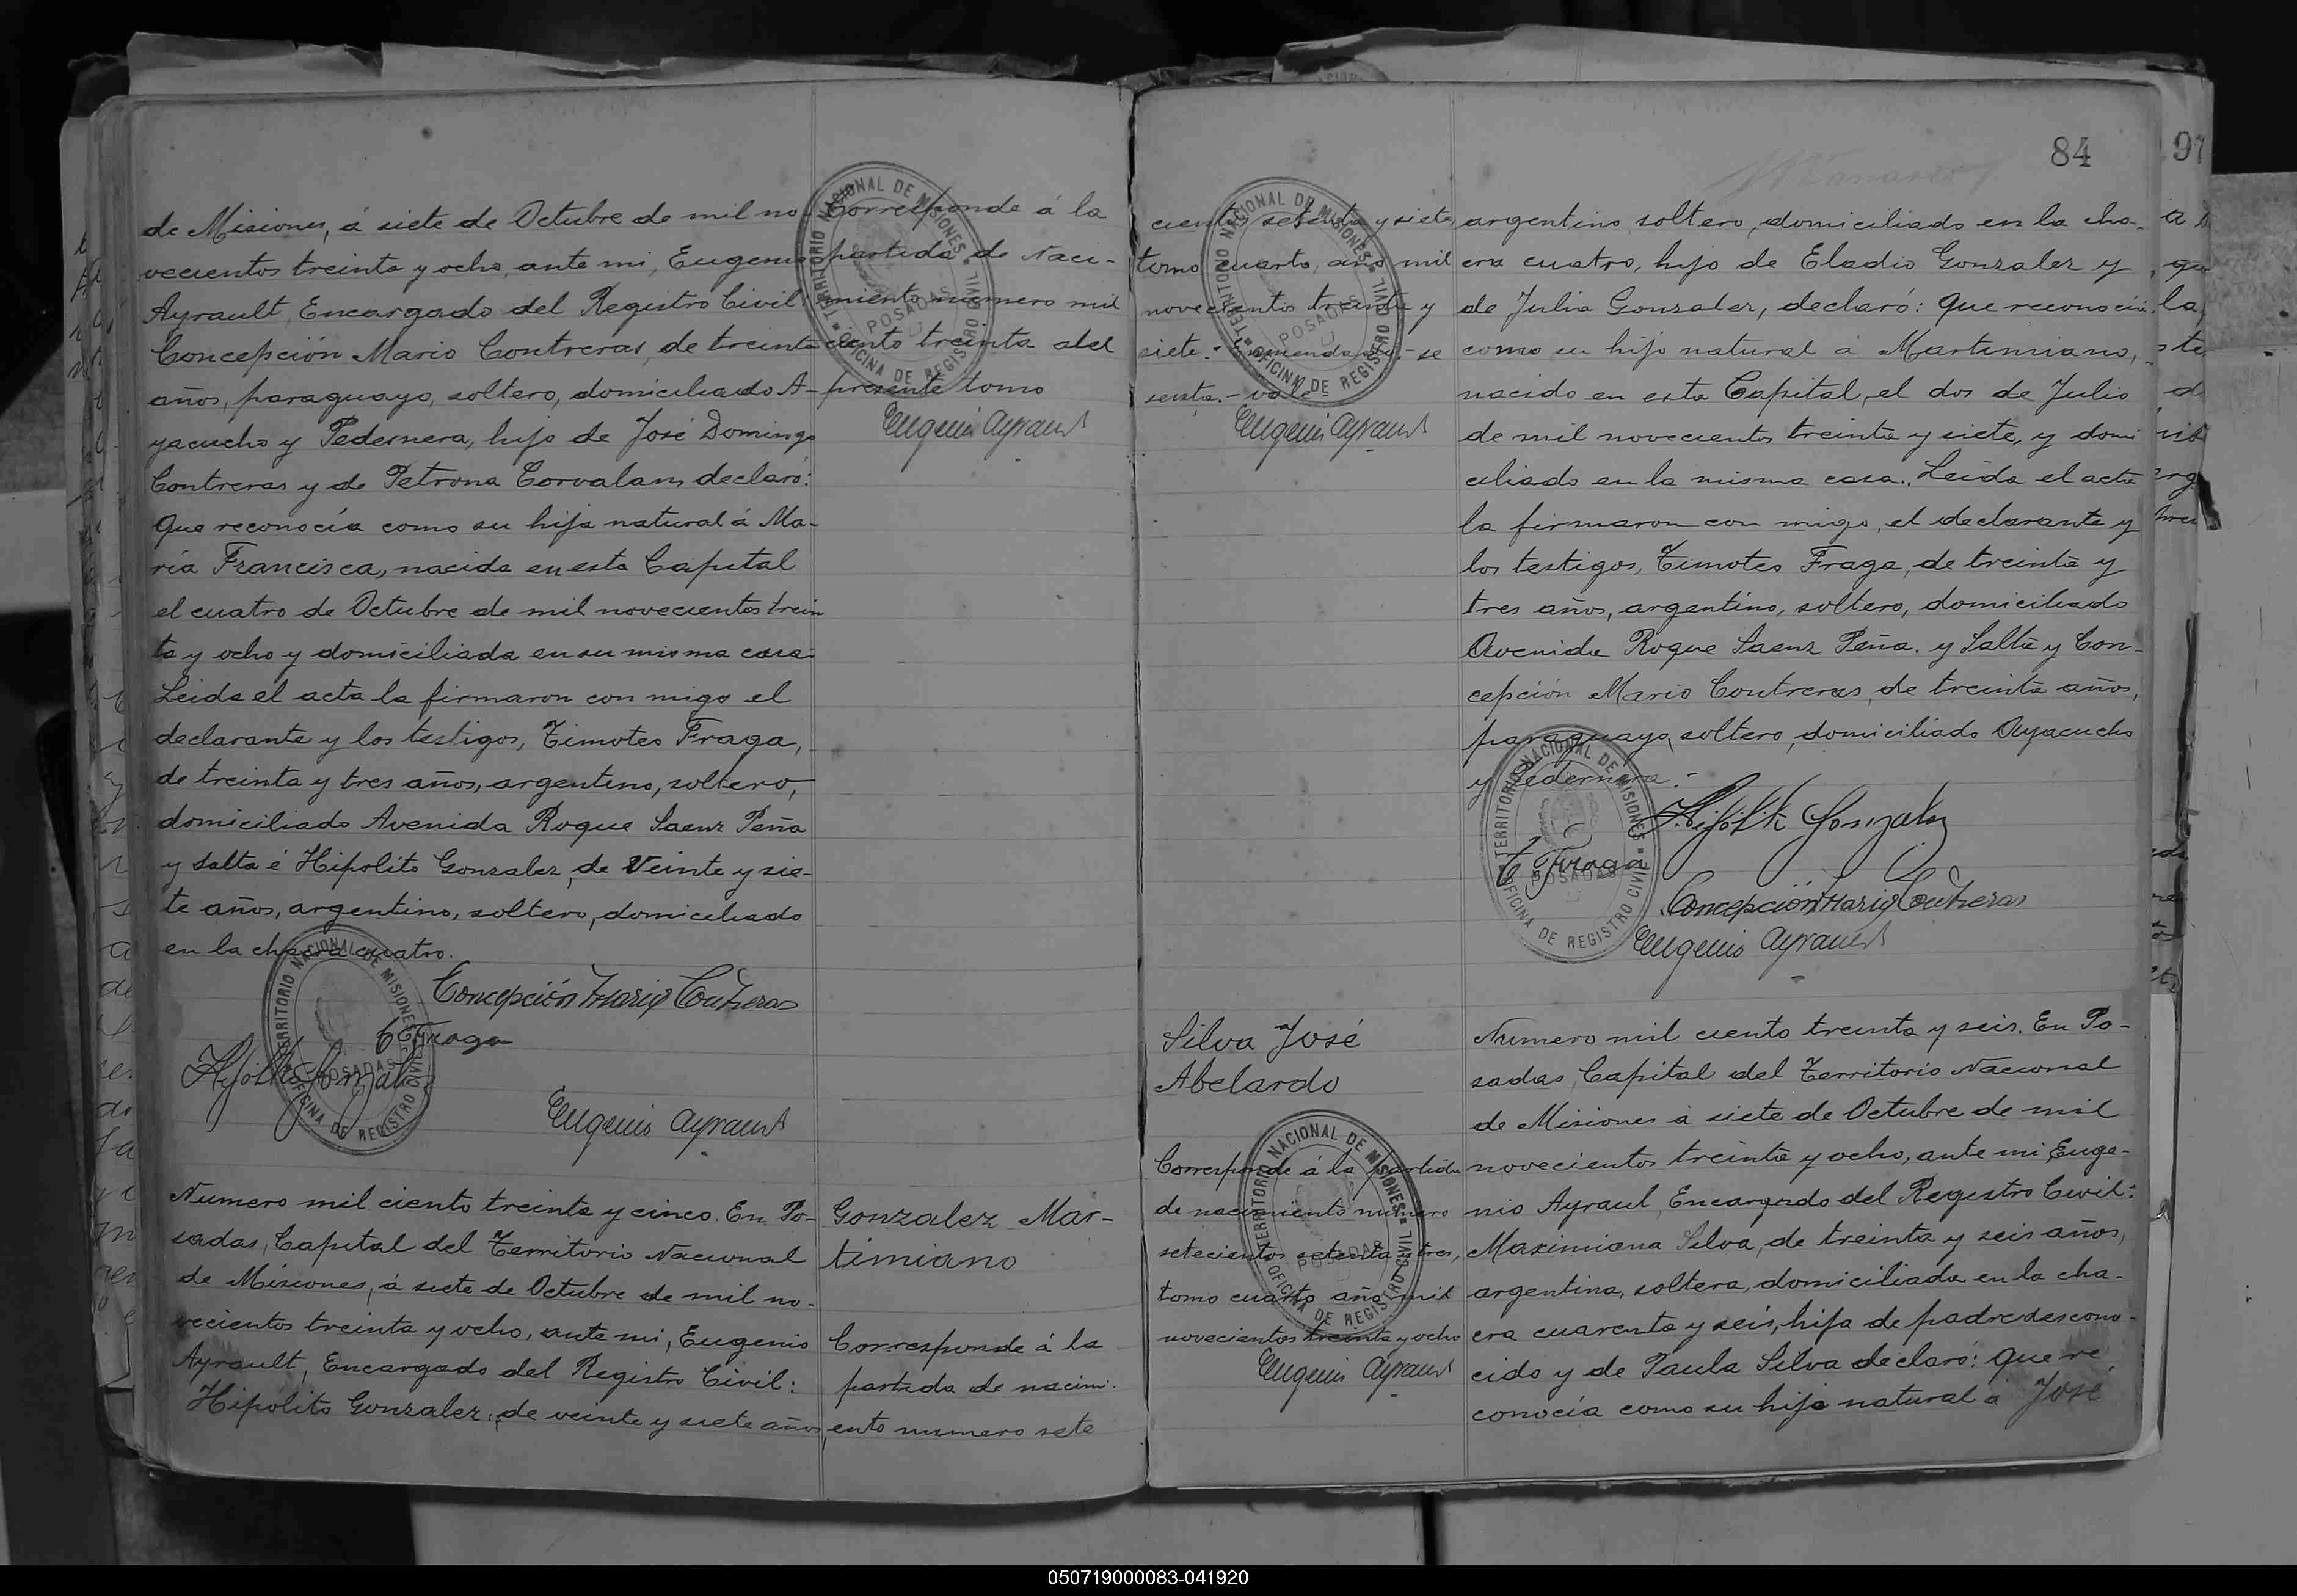 de Misiones, á siete de Octubre de mil no-
vecientos treinta y ocho, ante mi, Eugenio
Ayrault, Encargado del Registro Civil:
Concepción Mario Contreras, de treinta
años, paraguayo, soltero, domiciliado A-
yacucho y Pedernera, hijo de José Domingo
Contreras y de Petrona Corvalan, declaró:
Que reconocía como su hija natural á Ma-
ría Francisca, nacida en esta Capital
el cuatro de Octubre de mil novecientos trein
ta y ocho y domiciliada en su misma casa.
Leida el acta la firmaron con migo el
declarante y los testigos, Timoteo Fraga,
de treinta y tres años, argentino, soltero,
domiciliado Avenida Roque Saenz Peña
y Salta é Hipolito Gonzalez, de veinte y sie-
te años, argentino, soltero, domiciliado
en la chacra cuatro.
Concepción Mario Contreras
T Fraga
Hipolito Gonzalez
Eugenio Ayrault
TERRITORIO NACIONAL DE MISIONES
POSADAS
OFICINA DE REGISTRO CIVIL
Corresponde á la
partida de Naci-
miento numero mil
ciento treinta del
presente tomo
Eugenio Ayrault
TERRITORIO NACIONAL DE MISIONES
POSADAS
OFICINA DE REGISTRO CIVIL
Numero mil ciento treinta y cinco. En Po-
sadas, Capital del Territorio Nacional
de Misiones, á siete de Octubre de mil no-
vecientos treinta y ocho, ante mi, Eugenio
Ayrault, Encargado del Registro Civil:
Hipólito Gonzalez, de veinte y siete años,
Gonzalez Mar-
timiano
Corresponde á la
partida de nacimi-
ento numero sete
84
97
cientos setenta y siete
tomo cuarto, año mil
novecientos treinta y
siete.- Enmendado:- se
senta.- vale
Eugenio Ayrault
TERRITORIO NACIONAL DE MISIONES
POSADAS
OFICINA DE REGISTRO CIVIL
argentino, soltero, domiciliado en la cha-
cra cuatro, hijo de Eladio Gonzalez y
de Julia Gonzalez, declaró: Que reconocía
como su hijo natural á Martimiano,
nacido en esta Capital, el dos de Julio
de mil novecientos treinta y siete, y domi
ciliado en la misma casa. Leida el acta
la firmaron con migo, el declarante y
los testigos, Timoteo Fraga, de treinta y
tres años, argentino, soltero, domiciliado
Avenida Roque Saenz Peña. y Salta y Con-
cepción Mario Contreras, de treinta años,
paraguayo, soltero, domiciliado Ayacucho
y Pedernera.-
Hipolito Gonzalez
T Fraga
Concepción Mario Contreras
Eugenio Ayrault
TERRITORIO NACIONAL DE MISIONES
POSADAS
OFICINA DE REGISTRO CIVIL
Silva José
Abelardo
Corresponde á la partida
de nacimiento numero
setecientos setenta y tres,
tomo cuarto año mil
novecientos treinta y ocho
Eugenio Ayrault
TERRITORIO NACIONAL DE MISIONES
POSADAS
OFICINA DE REGISTRO CIVIL
Numero mil ciento treinta y seis. En Po-
sadas, Capital del Territorio Nacional
de Misiones á siete de Octubre de mil
novecientos treinta y ocho, ante mi, Euge-
nio Ayraul, Encargado del Registro Civil:
Maximiana Silva, de treinta y seis años,
argentina, soltera, domiciliada en la cha-
cra cuarenta y seis, hija de padre descono-
cido y de Paula Silva declaró: Que re
conocía como su hijo natural á José
050719000083-041920